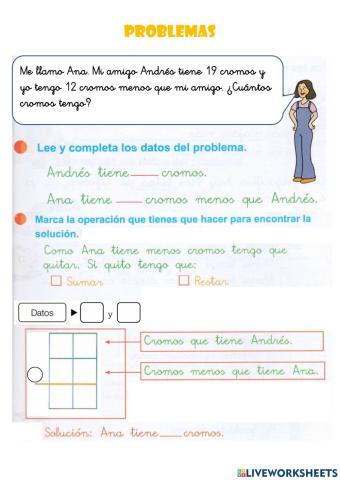 PROBLEMAS
Me llamo Ana. Mi amigo Andrés tiene 19 cromos y
yo tengo 12 cromos menos que mi amigo. ¿Cuántos
cromos tengo?
Lee y completa los datos del problema.
Andrés tiene____ cromos.
Ana tiene ____ cromos menos que Andrés.
Marca la operación que tienes que hacer para encontrar la
solución.
Como Ana tiene menos cromos tengo que
quitar. Si quito tengo que:
Sumar Restar
Datos y
Cromos que tiene Andrés.
Cromos menos que tiene Ana.
Solución: Ana tiene____cromos.
LIVEWORKSHEETS